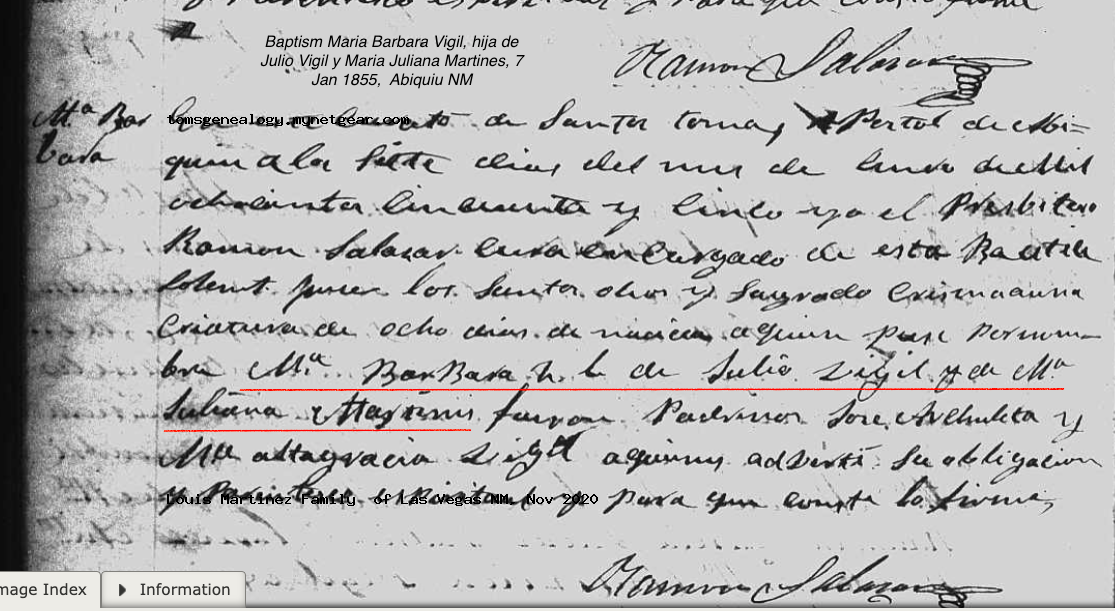 Baptism Maria Barbara Vigil, hija de
Julio Vigil y Maria Juliana Martines, 7
Jan 1855, Abiquiu NM
Ramon Salazar
Mª Bar
bara
tomsgenealogy.mynetgear.com
de Santo tomas Apostol de Abi=
quiu a los siete dias del mes de Enero de Mil
ochocientos Cincuenta y Cinco yo el Presbitero
Ramon Salazar Cura encargado de esta Bautise
Solemt. puse los Santos oleos y Sagrado Crisma a una
Criatura de ocho dias de nacida a quien puse por nom
bre Mª BarBara h. l. de Julio Vigil y de Mª
Juliana Martines fueron Padrinos Jose Archuleta y
Mª altagracia Vigil a quienes adverti su obligacion
y para que conste lo firme
Louis Martinez Family of Las Vegas NM, Nov 2020
Ramon Salazar
mage Index
Information